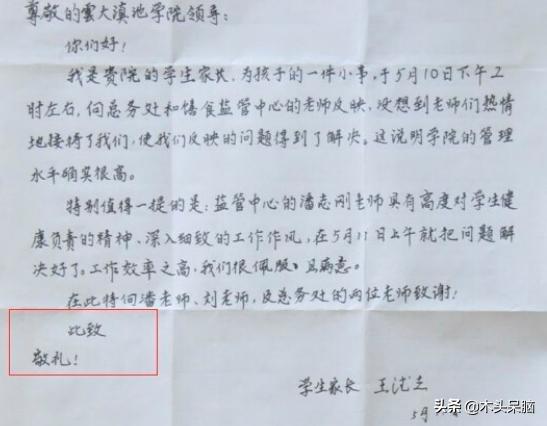 尊敬的云大滇池学院领导:
你们好!
我是贵院的学生家长,为孩子的一件小事,于5月10日下午2
时左右,向总务处和膳食监管中心的老师反映,没想到老师们热情
地接待了我们,使我们反映的问题得到了解决。这说明学院的管理
水平确实很高。
特别值得一提的是:监管中心的潘志刚老师具有高度对学生健
康负责的精神、深入细致的工作作风,在5月11日上午就把问题解
决好了。工作效率之高,我们很佩服、且满意。
在此特向潘老师、刘老师,及总务处的两位老师致谢!
此致
敬礼!
学生家长 王
5月
头条 @木头呆脑